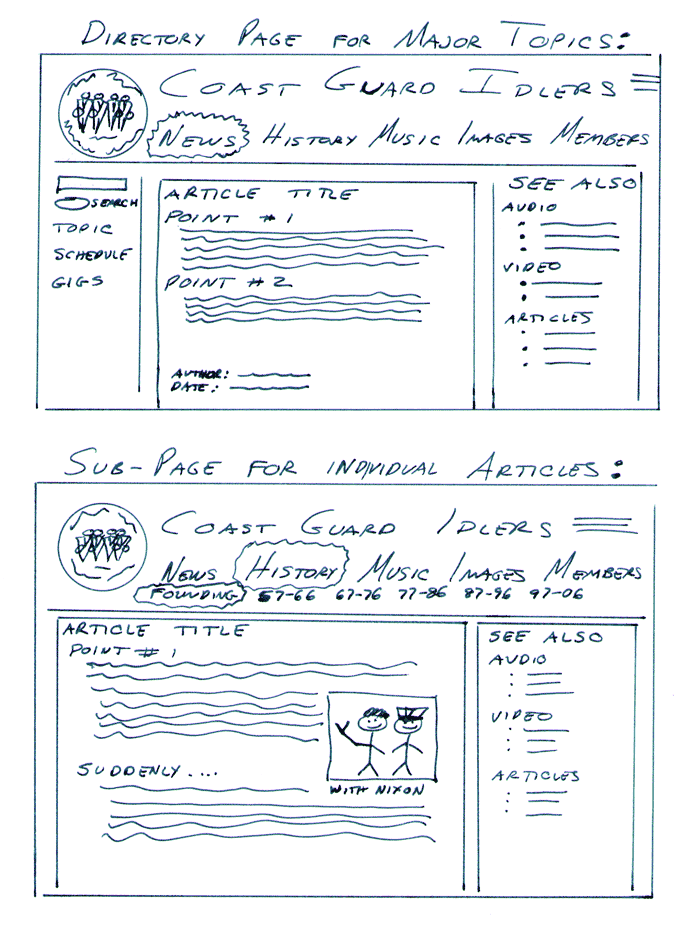 DIRECTORY PAGE FOR MAJOR TOPICS:
COAST GUARD IDLERS
NEWS HISTORY MUSIC IMAGES MEMBERS
SEARCH
TOPIC
SCHEDULE
GIGS
ARTICLE TITLE
POINT #1
POINT #2
AUTHOR:
DATE:
SEE ALSO
AUDIO
VIDEO
ARTICLES
SUB-PAGE FOR INDIVIDUAL ARTICLES:
COAST GUARD IDLERS
NEWS HISTORY MUSIC IMAGES MEMBERS
FOUNDING 57-66 67-76 77-86 87-96 97-06
ARTICLE TITLE
POINT #1
SUDDENLY....
WITH NIXON
SEE ALSO
AUDIO
VIDEO
ARTICLES